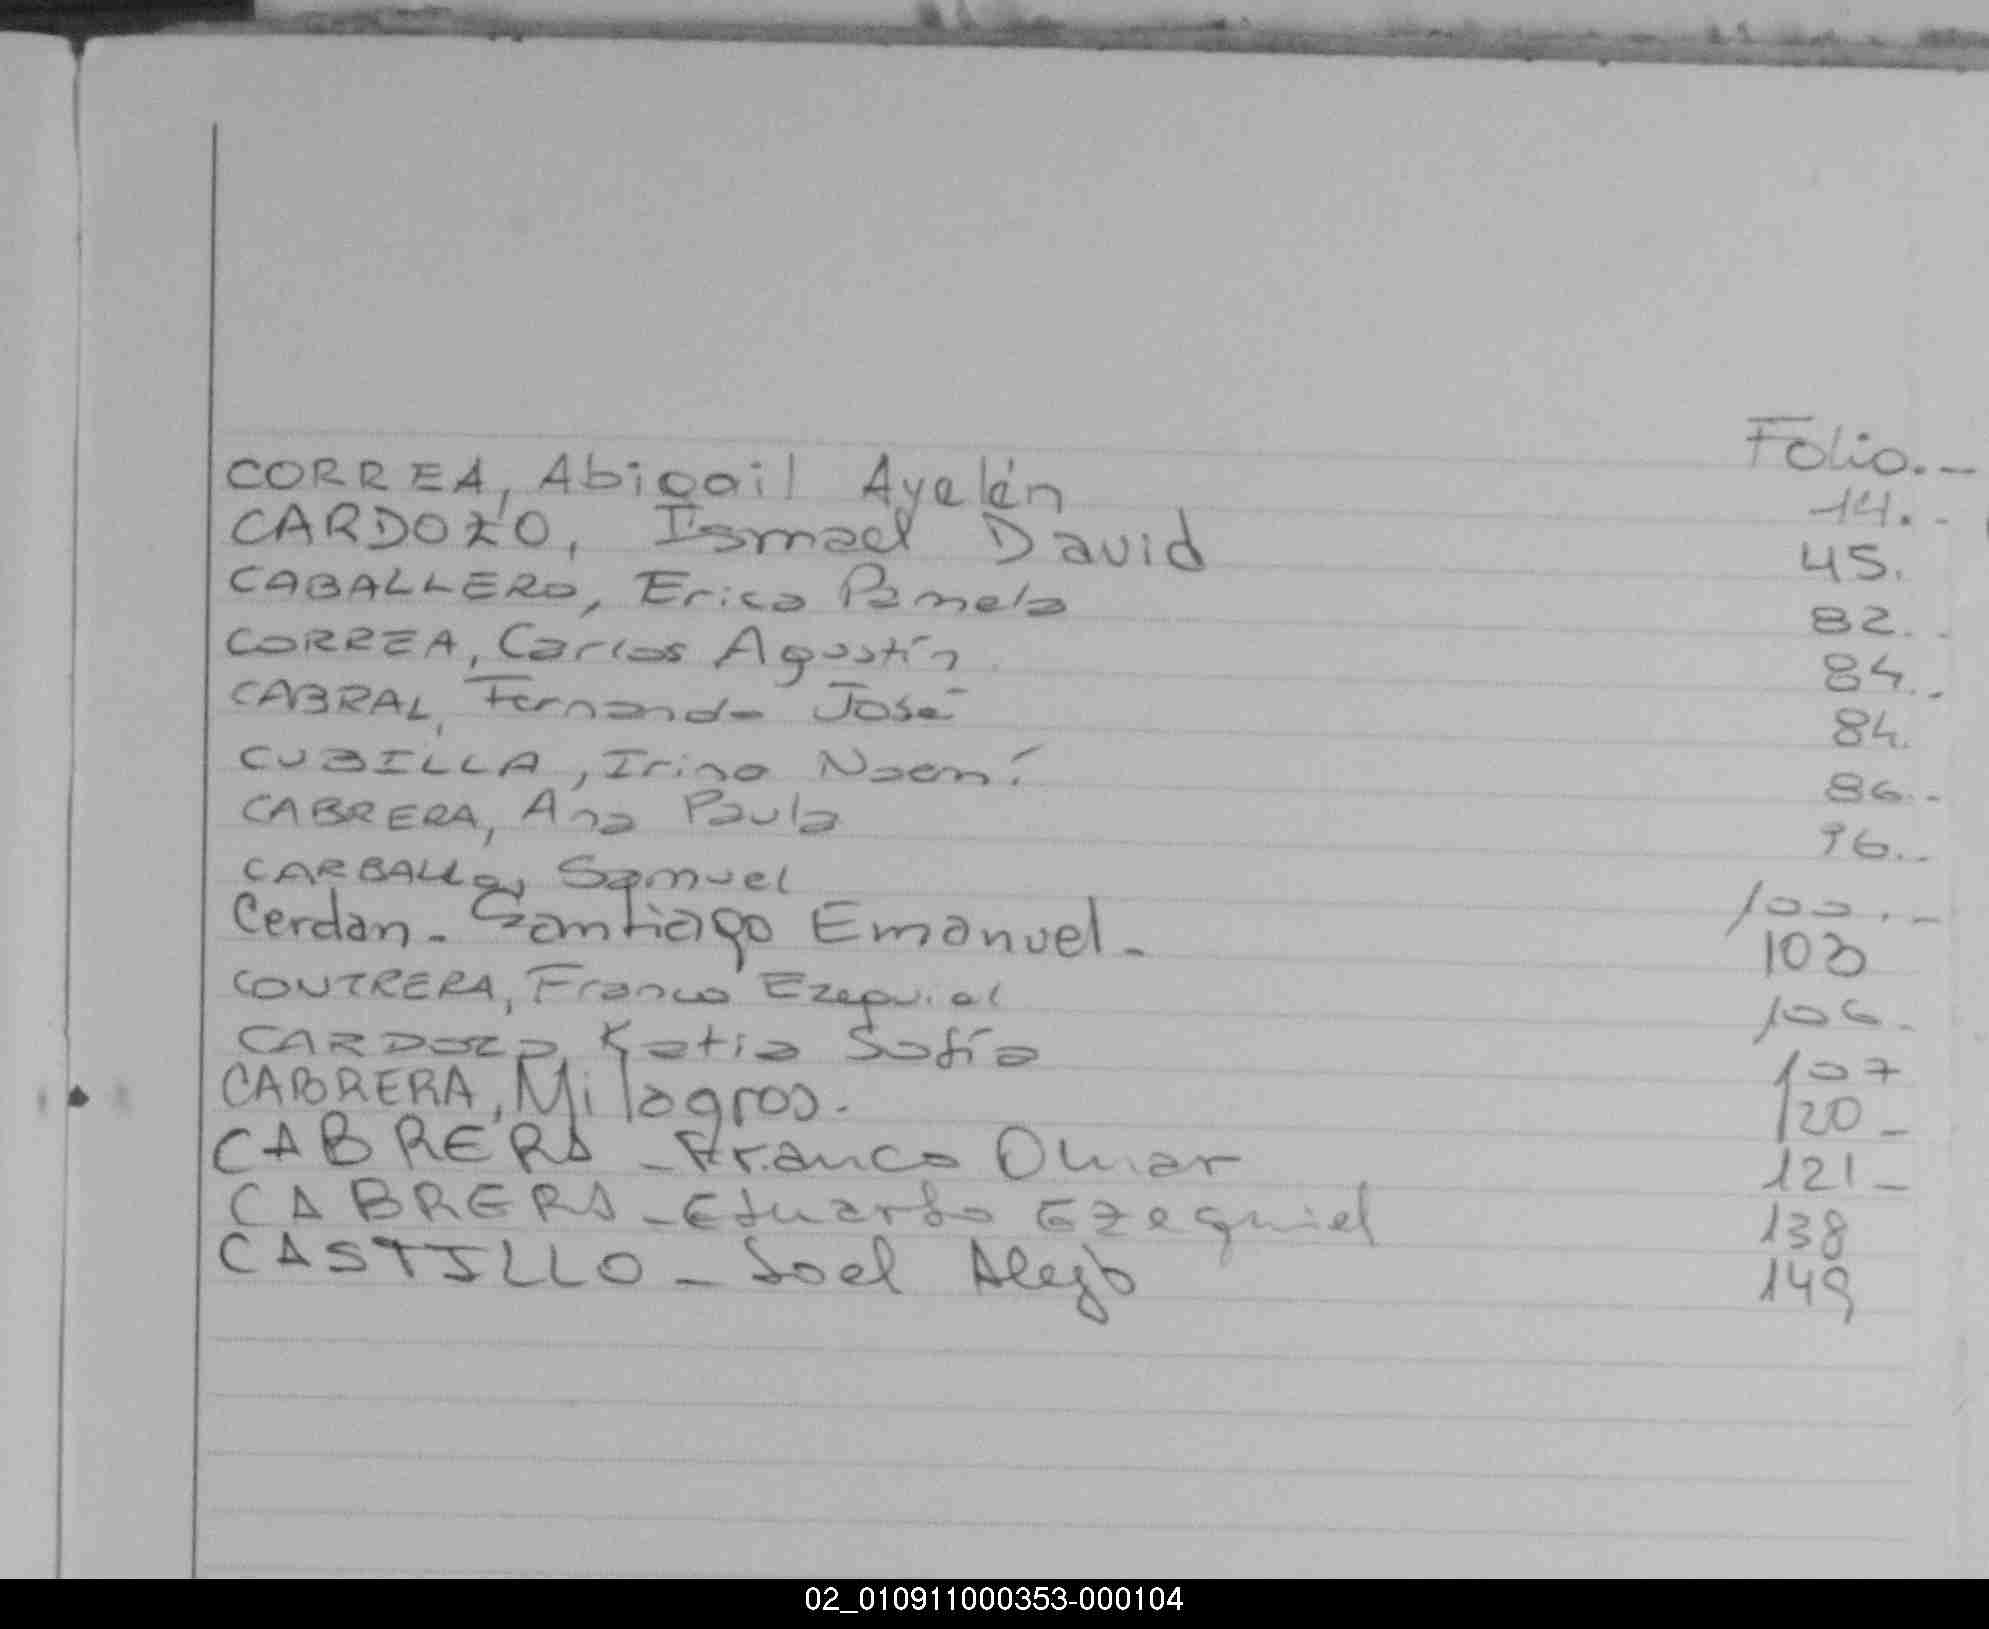 Folio.-
CORREA, Abigail Ayelén 14.-
CARDOZO, Ismael David 45.
CABALLERO, Erica Pamela 82.-
CORREA, Carlos Agustín 84.-
CABRAL, Fernando José 84.
CUBILLA, Irina Noemí 86.-
CABRERA, Ana Paula 96.-
CARBALLO, Samuel 100.-
Cerdan - Santiago Emanuel - 103
CONTRERA, Franco Ezequiel 106.
CARDOZO, Katia Sofía 107
CABRERA, Milagros. 120 -
CABRERA - Franco Omar 121 -
CABRERA - Eduardo Ezequiel 138
CASTILLO - Joel Alejo 149
02_010911000353-000104